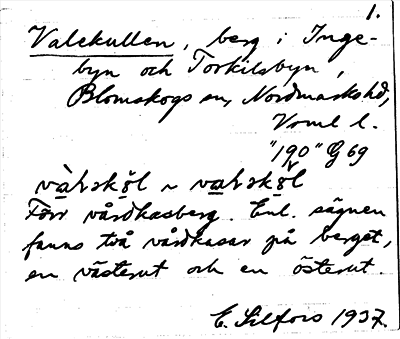 1.
Valekullen, berg i Inge-
byn och Torkilsbyn,
Blomskogs sn, Nordmarks hd,
Vrml l.
"190" G 69
vàlsköl ~ valsköl
Förr vårdkasberg. Enl. sägnen
fanns två vårdkasar på berget,
en västerut och en österut.
E. Silfors 1937.